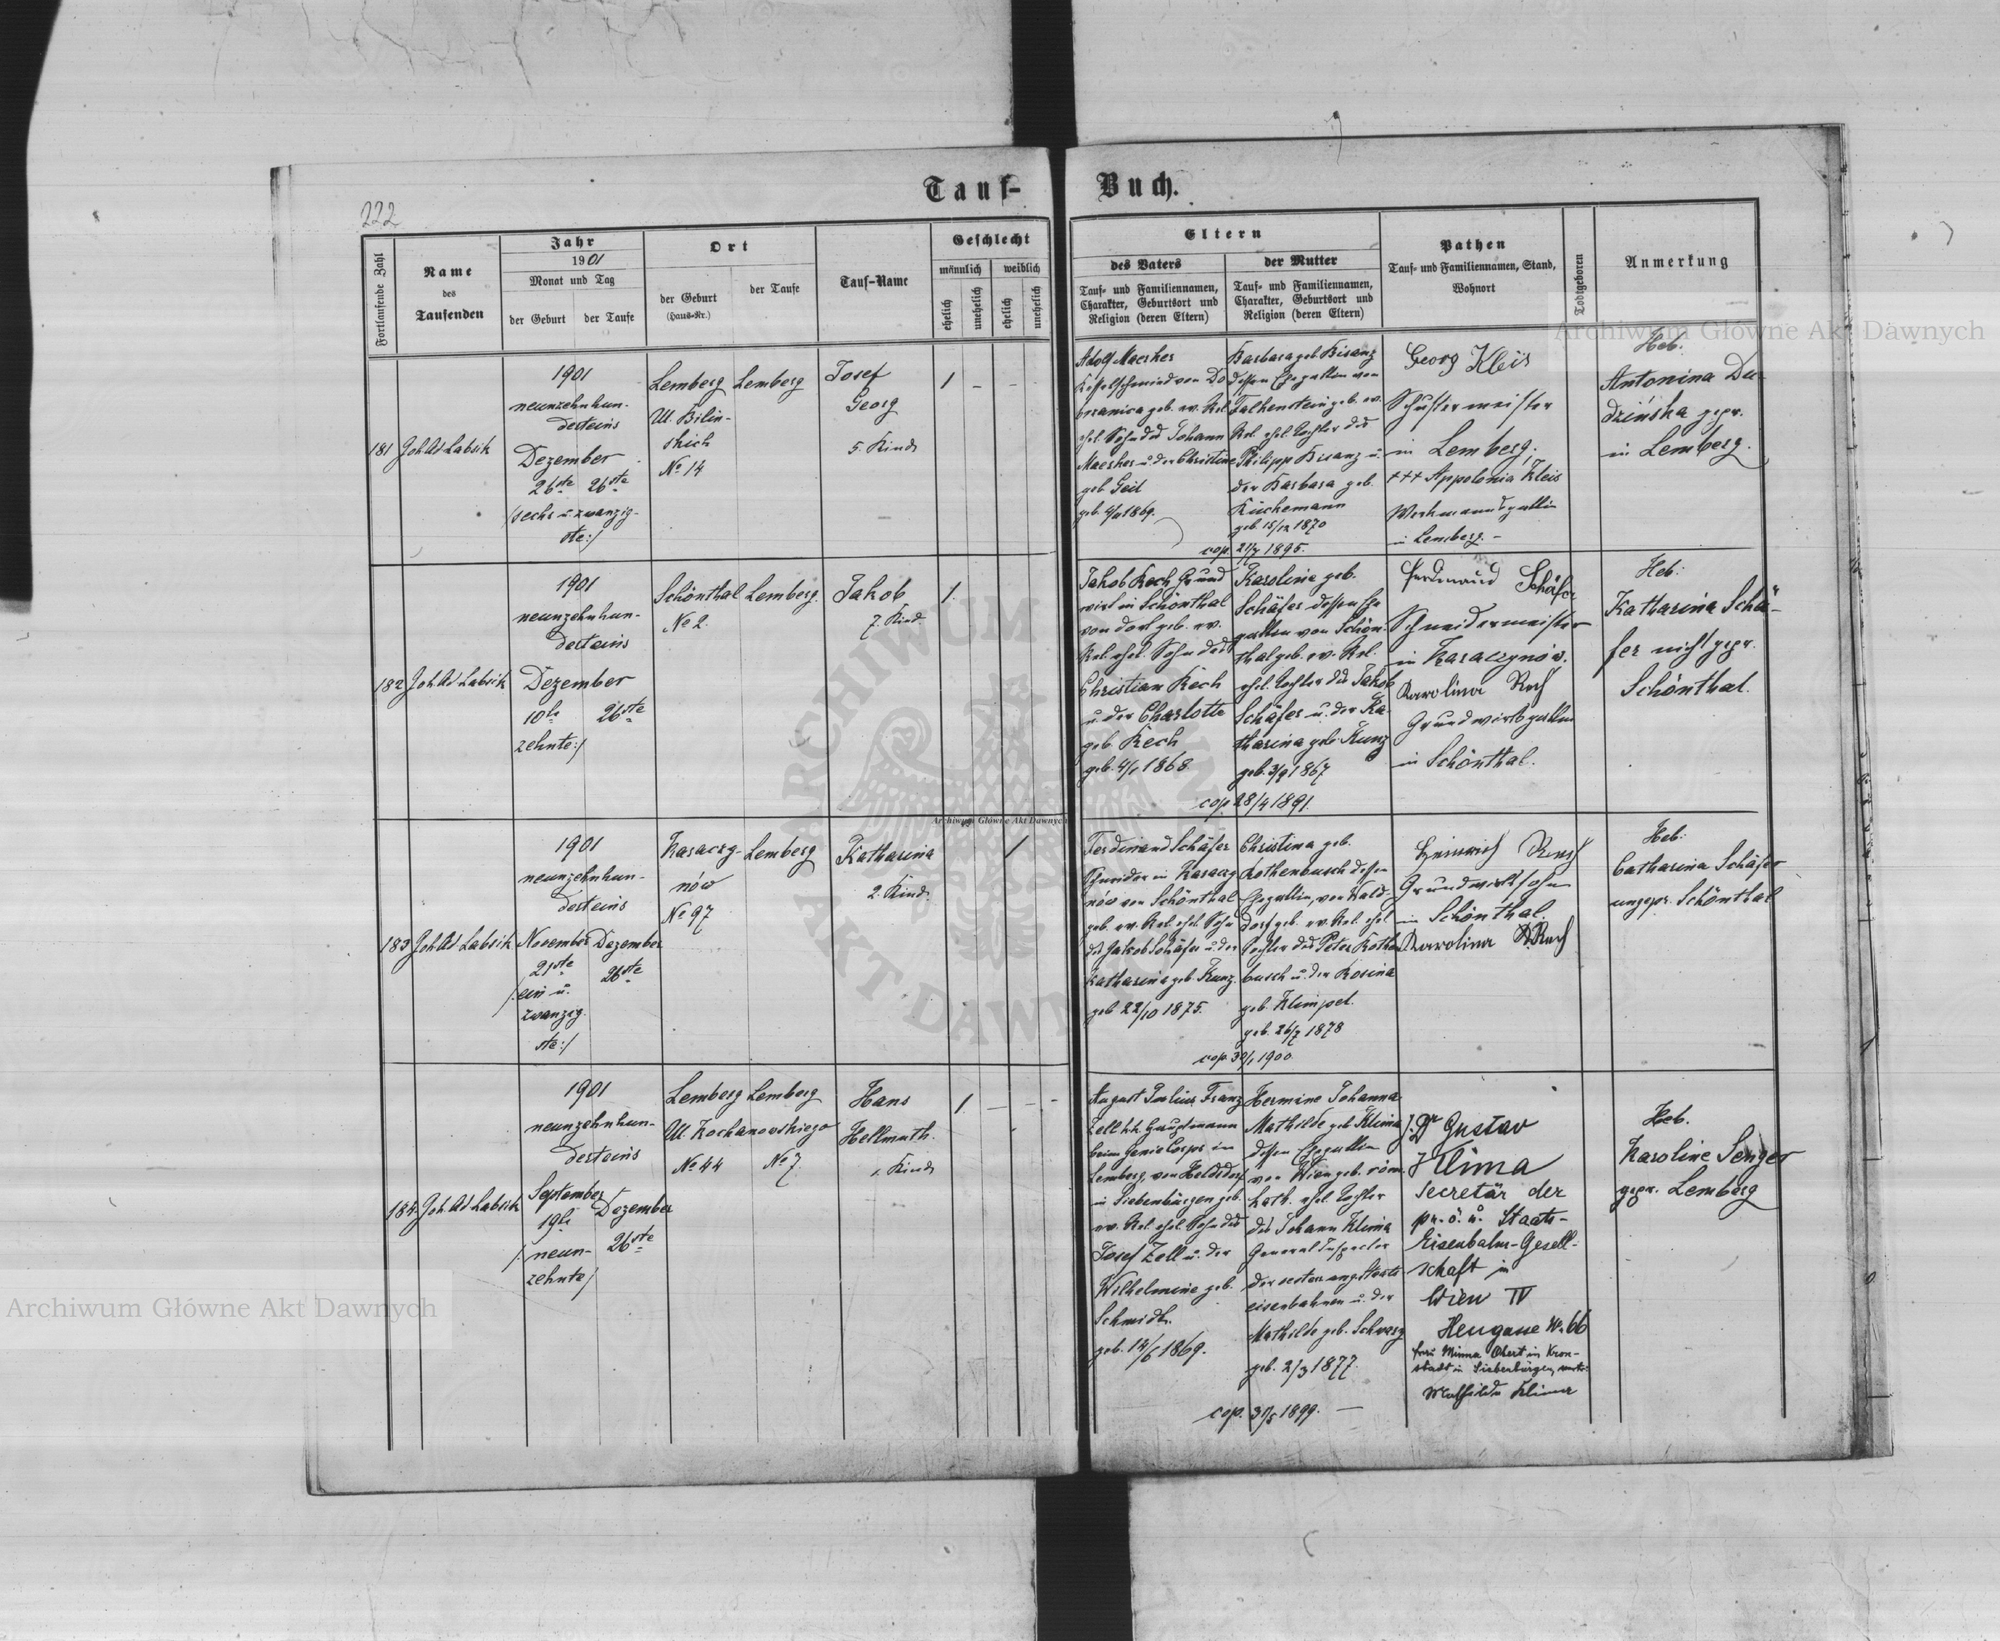 222
Tauf-Buch.
Fortlaufende Zahl
Name
des
Taufenden
Jahr
1901
Monat und Tag
der Geburt
der Taufe
Ort
der Geburt
(Haus-Nr.)
der Taufe
Tauf-Name
Geschlecht
männlich
weiblich
ehelich
unehelich
ehelich
unehelich
Eltern
des Vaters
Tauf- und Familiennamen,
Charakter, Geburtsort und
Religion (deren Eltern)
der Mutter
Tauf- und Familiennamen,
Charakter, Geburtsort und
Religion (deren Eltern)
Pathen
Tauf- und Familiennamen, Stand,
Wohnort
Todtgeboren
Anmerkung
181
Joh Ad Labsik
1901
neunzehnhun-
derteins
Dezember
26ste 26ste
/sechs u. zwanzig-
ste:/
Lemberg
Ul. Bilin-
skich
No 14
Lemberg
Josef
Georg
5. Kind
1 - - -
Adolf Maerker
Kesselschmied von Do
geb. ev. Rel.
ehel. Sohn des Johann
Maerker u. der Christine
geb. Geil
geb. 4/11 1869.
Barbara geb. Bisanz
dessen Ehegattin von
Falkenstein geb. ev.
Rel. ehel. Tochter des
Philipp Bisanz u.
der Barbara geb.
Küchemann
geb. 15/12 1870
cop. 21/7 1895.
Georg Kleis
Schustermeister
in Lemberg;
+++ Appolonia Kleis
in Lemberg. -
Heb.
Antonina Du-
dzińska gepr.
in Lemberg.
182
Joh Ad Labsik
1901
neunzehnhun-
derteins
Dezember
10te 26ste
zehnte:/
Schönthal
No 2.
Lemberg.
Jakob
7. Kind
1.
Jakob Rech Grund
wirt in Schönthal
von dort geb. ev.
Rel. ehel. Sohn des
Christian Rech
u. der Charlotte
geb. Rech
geb. 4/1 1868.
Karoline geb.
Schäfer dessen Ehe
gattin von Schön-
thal geb. ev. Rel.
ehel. Tochter des Jakob
Schäfer u. der Ka-
tharina geb. Kunz
geb. 3/9 1867
cop. 28/4 1891.
Ferdinand Schäfer
Schneidermeister
in Karaczynów.
Karolina Rech
Grundwirtsgattin
in Schönthal.
Heb:
Katharina Schä-
fer nicht gepr.
Schönthal.
183
Joh Ad Labsik
1901
neunzehnhun-
derteins
November Dezember
21ste 26ste
/:ein u.
zwanzig-
ste:/
Karaczy-
nów
No 97
Lemberg
Katharina
2. Kind.
1
Ferdinand Schäfer
Schneider in Karaczy
now von Schönthal
geb. ev. Rel. ehel. Sohn
des Jakob Schäfer u. der
Katharina geb. Kunz.
geb. 22/10 1875.
Christina geb.
Rothenbusch dessen
Ehegattin, von Wald-
dorf geb. ev. Rel. ehel.
Tochter des Peter Rothen
busch u. der Rosina
geb. Klimpel.
geb. 26/7 1878
cop. 30/1 1900.
Heinrich Rech
Grundwirtssohn
in Schönthal.
Karolina Rech
Heb:
Catharina Schäfer
ungepr. Schönthal
184
Joh Ad Labsik
1901
neunzehnhun-
derteins
September Dezember
19te 26ste
/:neun-
zehnte/
Lemberg
Ul. Kochanowskiego
No 44
Lemberg
No 7.
Hans
Hellmuth.
1. Kind
1. - - -
August Julius Franz
Zell k. k. Hauptmann
beim Genie Corps in
Lemberg, von Heldsdorf
in Siebenbürgen geb.
ev. Rel. ehel. Sohn des
Josef Zell u. der
Wilhelmine geb.
Schmidt.
geb. 14/6 1869.
Hermine Johanna
Mathilde geb. Klima
dessen Ehegattin
von Wien geb. röm.
kath. ehel. Tochter
des Johann Klima
General Inspector
der oesterr. ung. Staats
eisenbahnen u. der
Mathilde geb. Schwarz
geb. 2/3 1877.
cop. 31/5 1899. -
J. Dr Gustav
Klima
Secretär der
pr. ö. u. Staats-
Eisenbahn-Gesell-
schaft in
Wien IV
Heugasse No 66
Frau Minna Obert in Kron-
stadt in Siebenbürgen,
Mathilde Klima
Heb.
Karoline Senger
gepr. Lemberg
Archiwum Główne Akt Dawnych
Archiwum Główne Akt Dawnych
Archiwum Główne Akt Dawnych